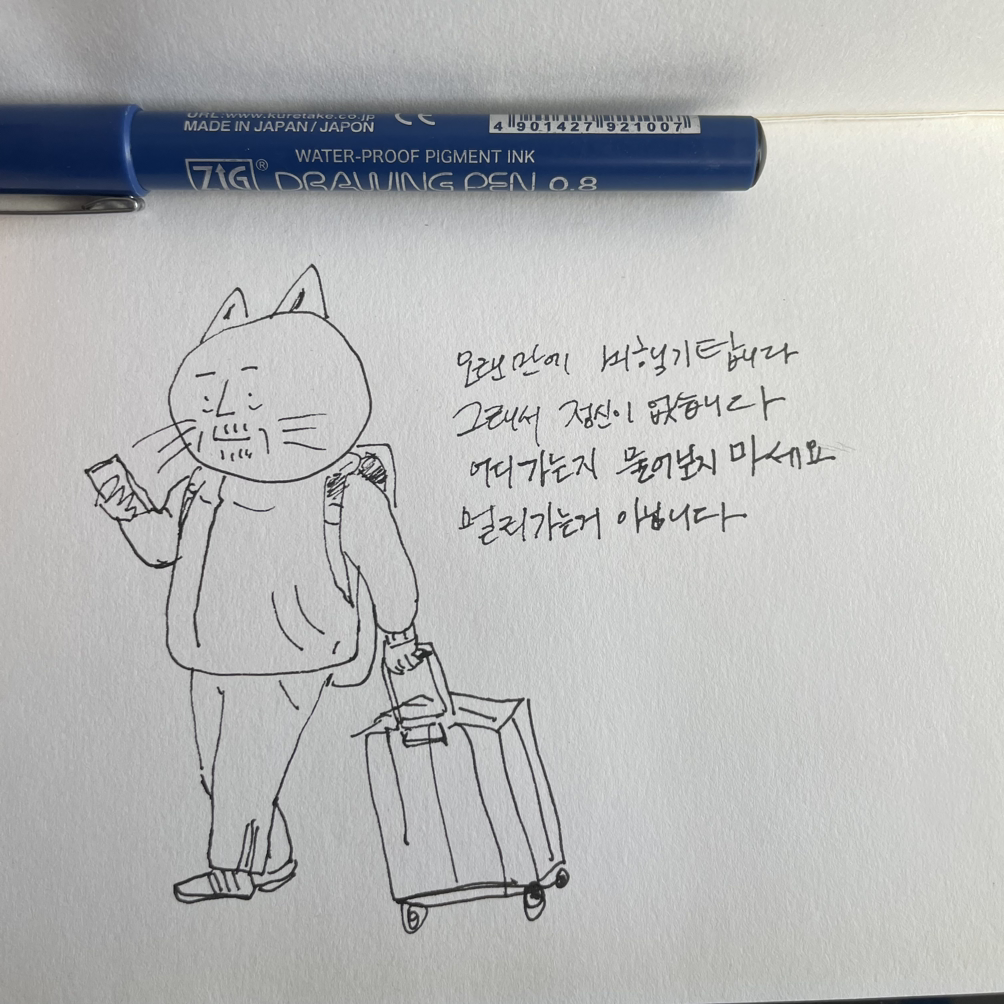 URL:www.kuretake.co.jp
MADE IN JAPAN / JAPON
CE
4 901427 921007
WATER-PROOF PIGMENT INK
ZIG® DRAWING PEN 0.8
오랜만에 비행기탑니다
그래서 정신이 없습니다
어디가는지 물어보지 마세요
멀리가는거 아닙니다